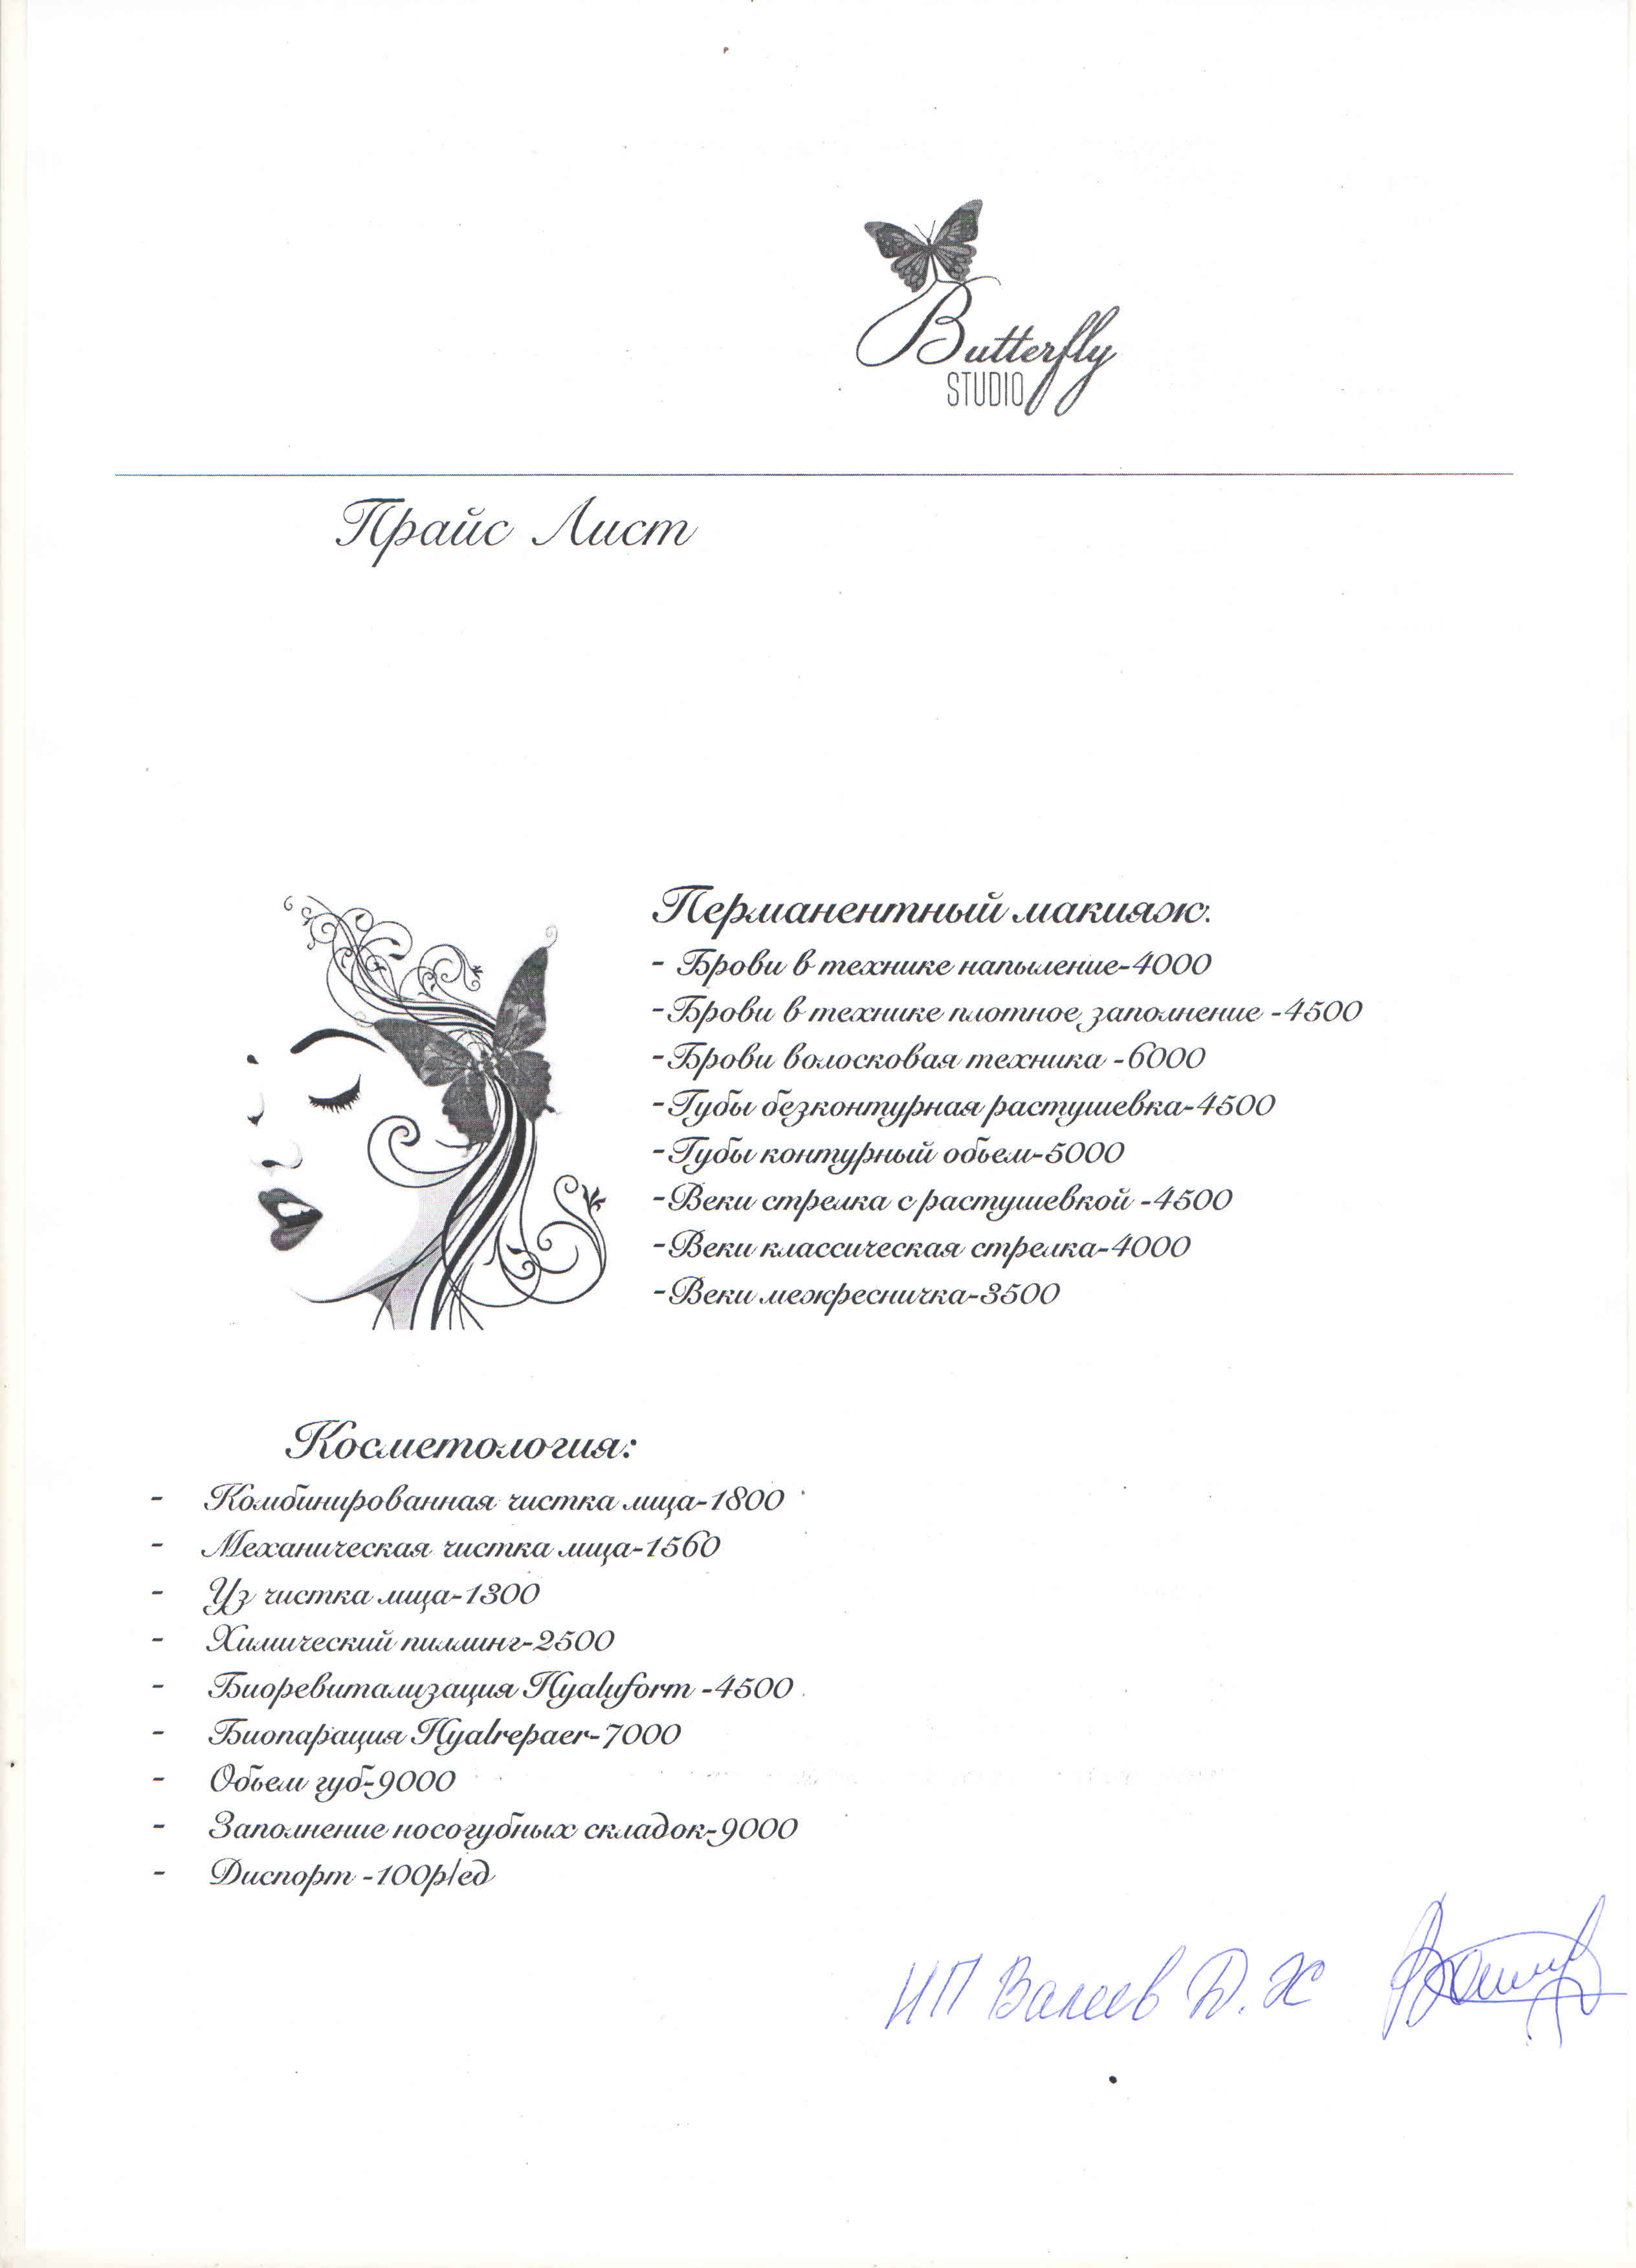 Butterfly
STUDIO
Прайс Лист
Перманентный макияж.
- Брови в технике напыление-4000
-Брови в технике плотное заполнение -4500
-Брови волосковая техника -6000
-Губы безконтурная растушевка-4500
-Губы контурный обьем-5000
-Веки стрелка с растушевкой -4500
-Веки классическая стрелка-4000
-Веки межресничка-3500
Косметология:
- Комбинированная чистка лица-1800
- Механическая чистка лица-1560
- Уз чистка лица-1300
- Химический пиллинг-2500
- Биоревитализация Hyaluform -4500
- Биопарация Hyalrepaer-7000
- Обьем губ-9000
- Заполнение носогубных складок-9000
- Диспорт -100р/ед
ИП Валеев Д. Х